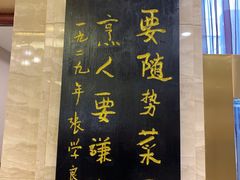 要随势菜
烹人要谦
一九二九年 张学良